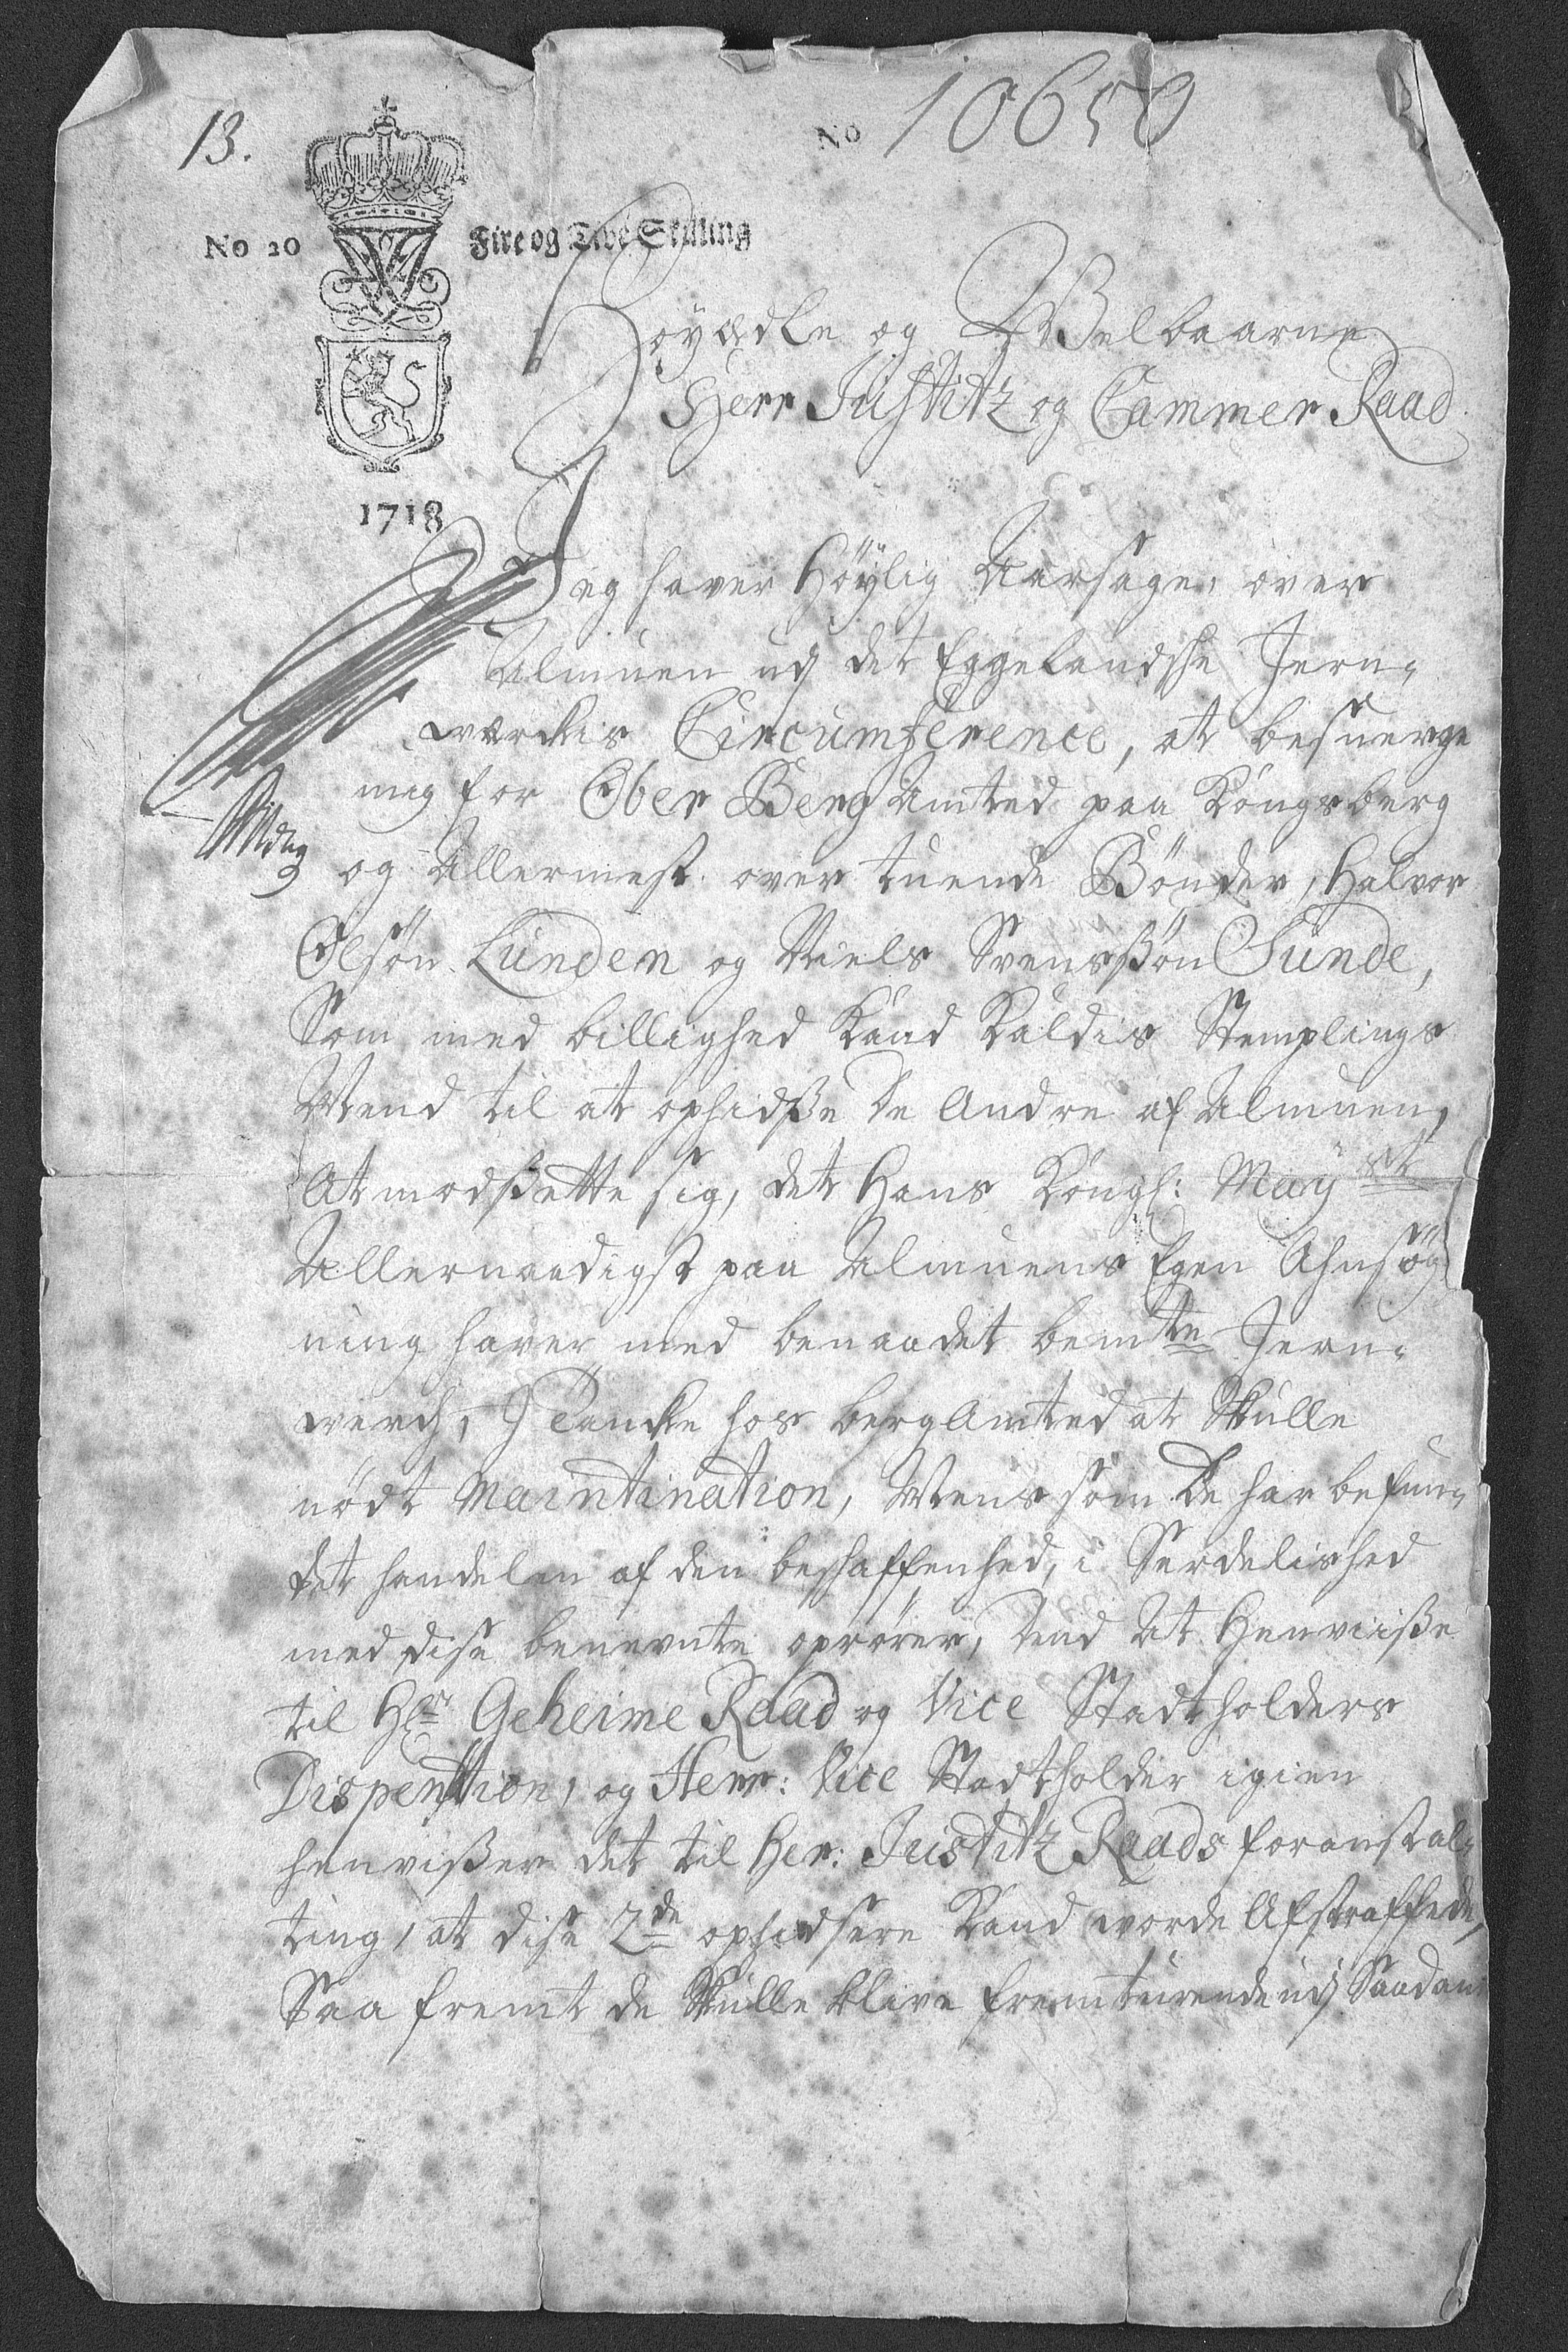 13.
No 10650
No 20
Fire og Tive Skilling
1718
Höyædle og Welbaarne
Herr Justitz og Cammer Raad
Jeg haver höÿlig Aarsage, över
Almuen udj det Eggelandske Jern-
værckis Circumference, at besuerge
mig for Ober Berg Amted paa Kongsberg
og Allermest over tuende Bönder, Halvor
Olsön Lunden og Niels Svensßön Sunde,
Som med billighed Kand Kaldis Stemplings
Mend til at ophidsße De Andre af Almuen,
At modßætte sig, det Hans Kongl: Mayst
Allernaadigst paa Almuens Egen Ahnsøg
ning haver med benaadet bemte Jern-
werch, J Tancke hos bergAmted at Skulle
nödt Maintination, Mens som De har befun-
det handelen af den beskaffenhed, i Serdelished
med dise benevnte oprörer, Dend At Henviiße
til Hr Geheime Raad og Vice Stadtholders
Dispention, og Herr: Vice Stadtholder igien
henvißer det til Her: Justitz Raads foranstal-
ting, at dise 2de ophidsere Kand worde Afstraffede,
Saa fremt de Skulle blive fremturende udj Saadan